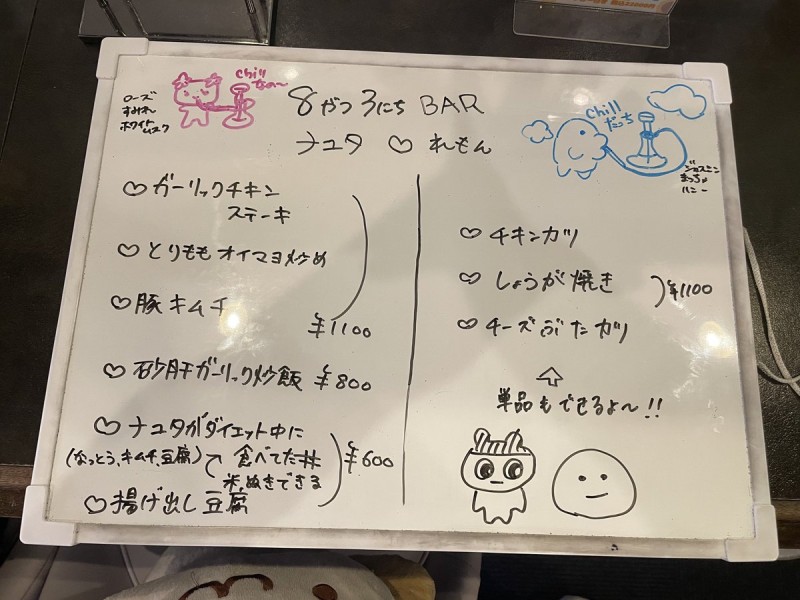 chill
なの〜
ローズ
すみれ
ホワイト
ムスク
8がつ3にち BAR
ナユタ ♡ れもん
chill
だっち
ジャスミン
まっちゃ
ハニー
♡ ガーリックチキン
ステーキ
♡ とりももオイマヨ炒め
♡ 豚キムチ
¥1100
♡ 砂肝ガーリック炒飯 ¥800
♡ ナユタがダイエット中に
(なっとう、キムチ、豆腐) 食べてた丼
米ぬきできる
¥600
♡ 揚げ出し豆腐
♡ チキンカツ
♡ しょうが焼き
¥1100
♡ チーズぶたカツ
単品もできるよ〜!!